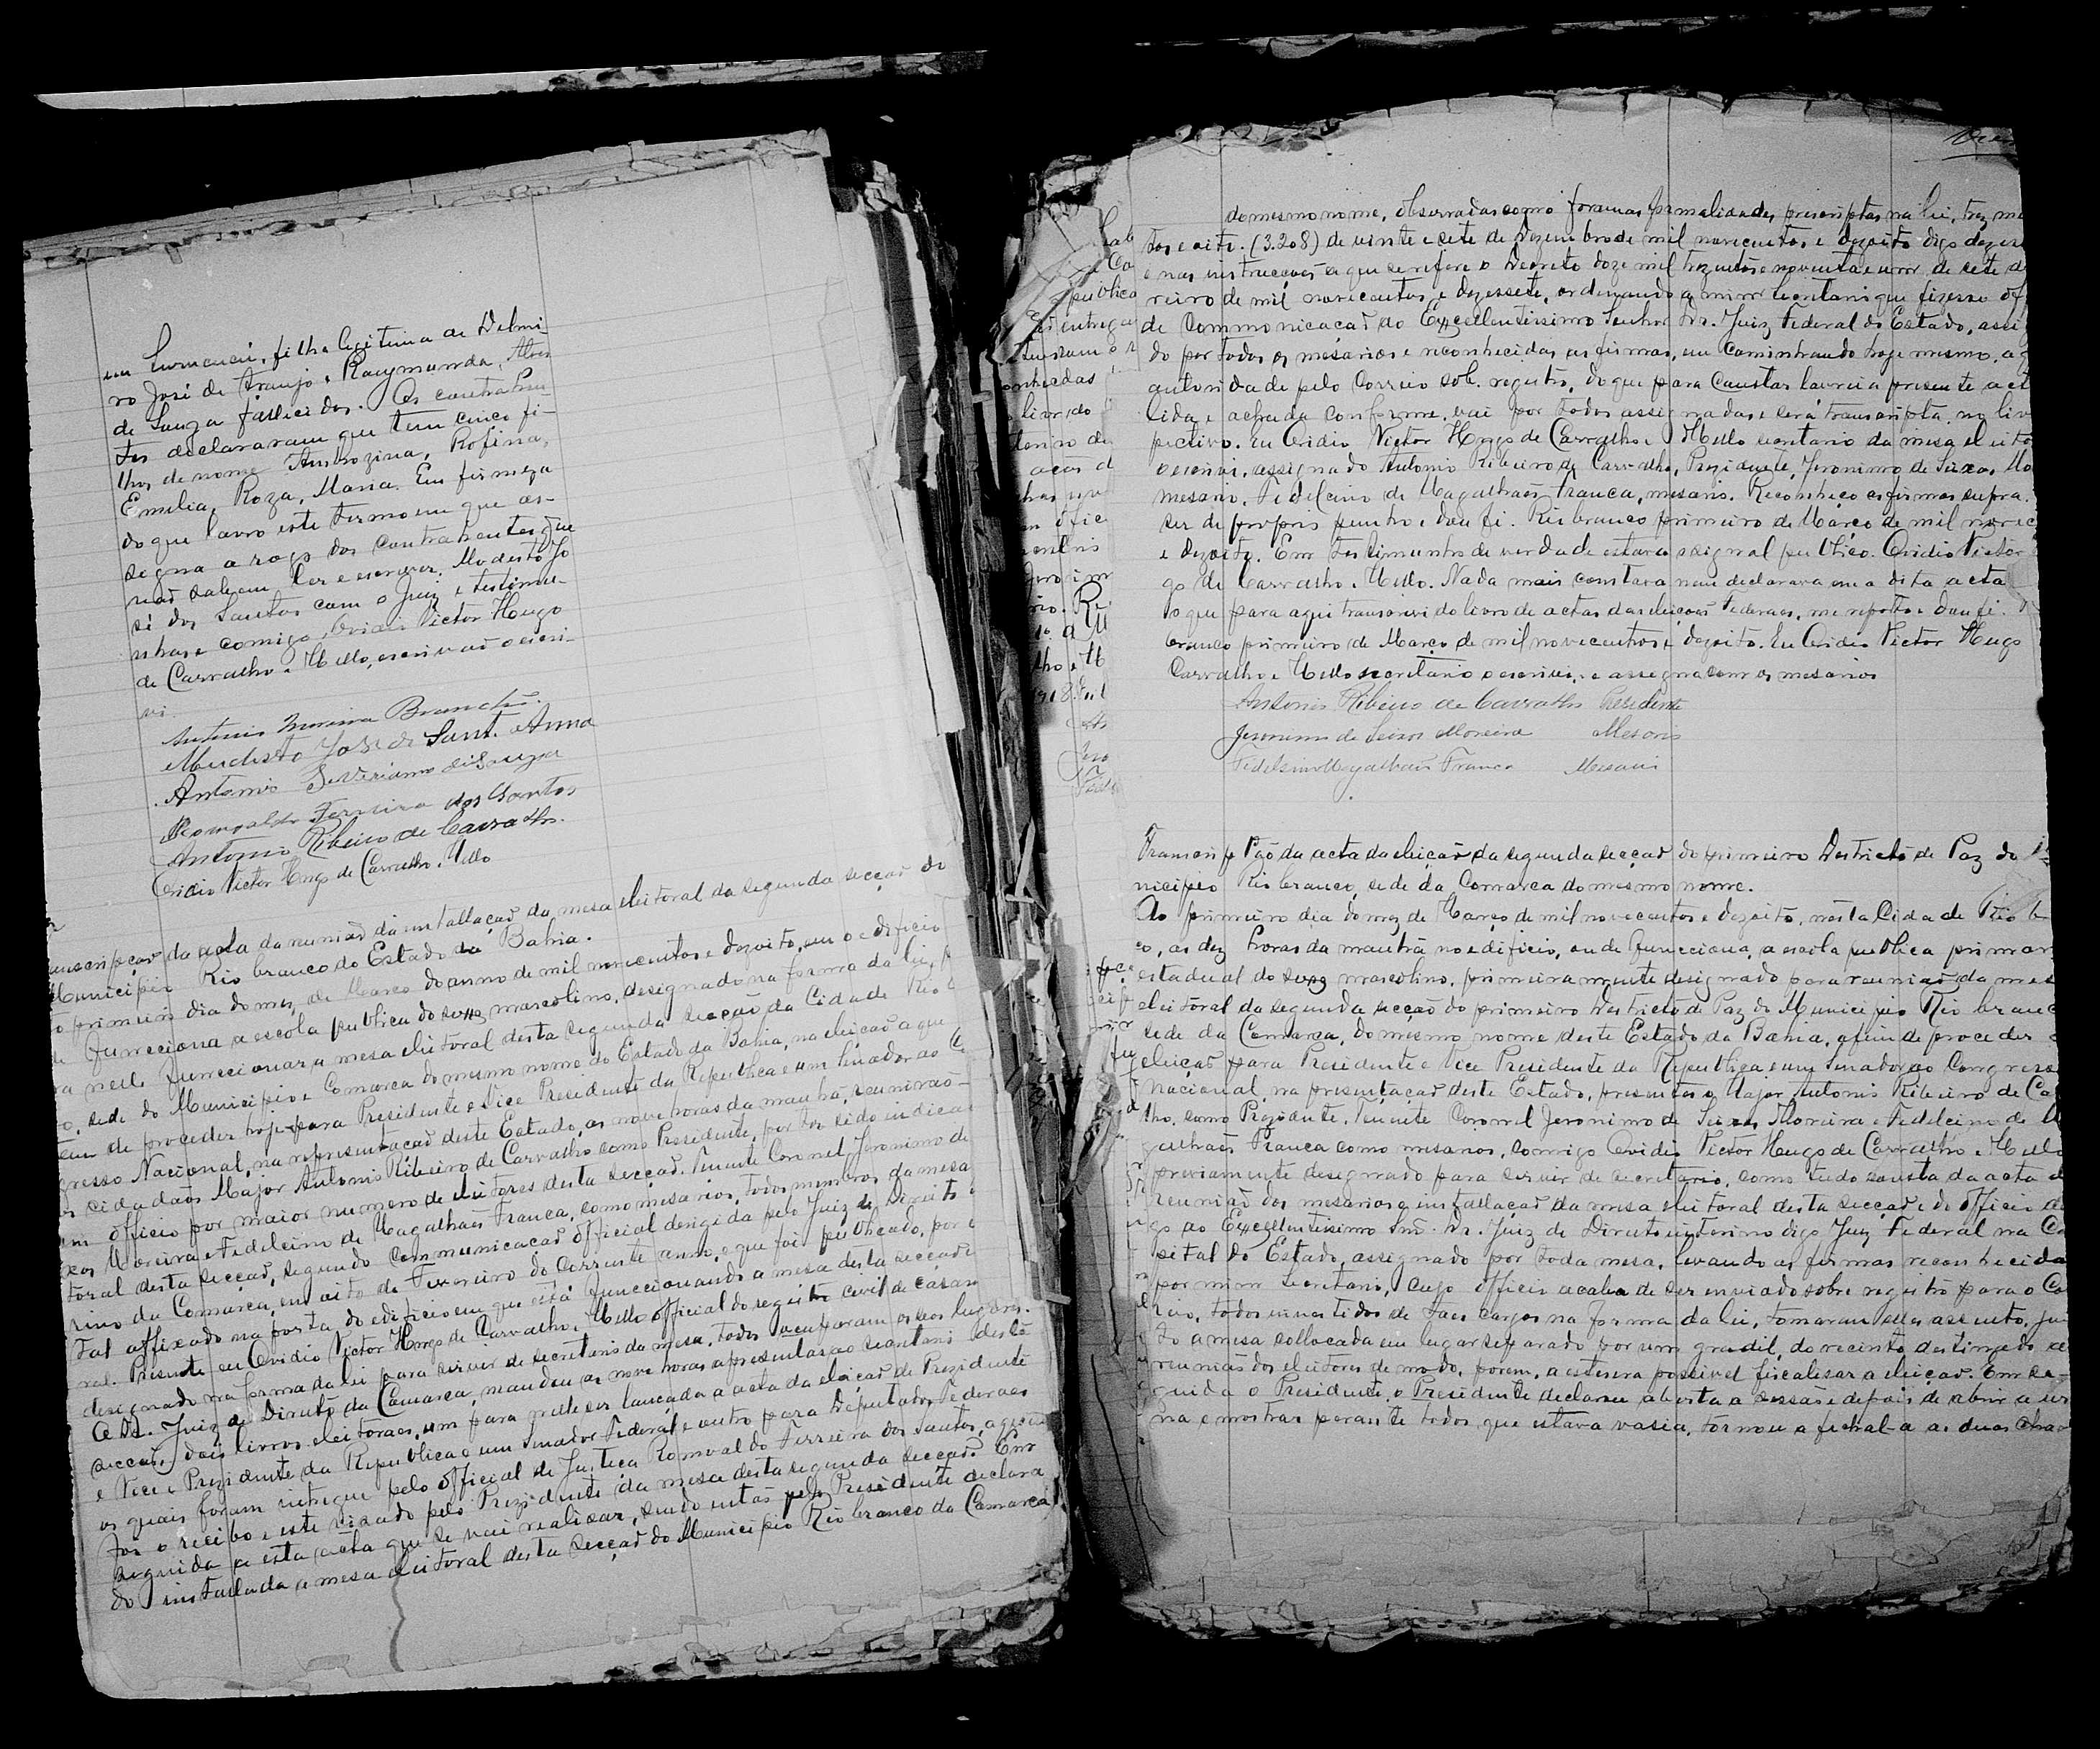 em Curucucú, filha legitima de Delmi-
ro José de Araujo e Raymunda Alves
de Souza fallecidos. Os contrahen
tes declararam que tem cinco fi-
lhos de nome Ambrozina, Rofina,
Emilia, Roza, Maria. Em firmeza
do que lavro este termo em que as-
signa a rogo dos contrahentes que
não sabem ler e escrever, Modesto Jo
sé dos Santos com o Juiz e testimu-
nhas e comigo, Ovidio Victor Hugo
de Carvalho e Mello, escrivão o escri-
vi.
Antonio Branchú
Modesto José de Sant'Anna
Antonio Severiano de Souza
Romoaldo Ferreira dos Santos
Antonio Ribeiro de Carvalho.
Ovidio Victor Hugo de Carvalho e Mello
anscripção da acta da reunião da installação da mesa eleitoral da segunda secção do
Municipio Rio branco do Estado da Bahia.
o primeiro dia do mez de Março do anno de mil novecentos e dezoito, em o edificio
de funcciona a escola publica do sexo mascolino, designado na forma da lei, p
ra nelle funccionar a mesa eleitoral desta segunda secção da Cidade Rio b
o, sede do Municipio e Comarca do mesmo nome do Estado da Bahia, na eleição a que
tem de proceder hoje para Presidente e Vice Presidente da Republica e um Senador ao
gresso Nacional, na representação deste Estado, as nove horas da manhã, reunirão-
s cidadãos Major Antonio Ribeiro de Carvalho como Presidente, por ter sido indicad
em officio por maior numero de eleitores desta secção. Tenente Coronel Jeronimo de
xas Moreira e Fidelcino de Magalhães Franca, como mesarios, todos membros da mesa
toral desta secção, segundo communicação official derigida pelo Juiz de Direito
rino da Comarca, em oito de Fevereiro do corrente anno, e que foi publicado, por e
tal affixado na porta do edificio em que está funccionando a mesa desta secção
ral. Presente eu Ovidio Victor Hugo de Carvalho e Mello official do registro civil de casam
designado na forma da lei para servir de secretario da mesa, todos occuparam os seos lugares.
O Dr. Juiz de Direito da Comarca, mandou as nove horas apresentas ao secretario desta
secção, dois livros eleitoraes, um para nelle ser lançada a acta da eleição de Prezidente
e Vice Prezidente da Republica e um Senador Federal e outro para Deputados Federaes
os quais foram intregue pelo official de Justiça Romoaldo Ferreira dos Santos, a
o recibo e este vizado pelo Prezidente da mesa desta segunda secção. Em
seguida a esta acta que se vai realisar, sendo então pelo Presidente declara
do installada a mesa eleitoral desta secção do Municipio Rio branco da Comarca
do mesmo nome, observadas como foram as formalidades prescriptas na lei, trez mi
tos e oito. (3.208) de vinte e sete de Dezembro de mil novecentos e dezoito digo dezes
e nas instrucções a que se refere o Decreto doze mil trezentos e noventa e um de sete d
reiro de mil novecentos e dezessete, ordenando a mim Secretario que fizesse of
de Communicação ao Excellentissimo Senhor Dr. Juiz Federal do Estado, assi
do por todos os mesarios e reconhecidas as firmas, em caminhando hoje mesmo, a q
autoridade pelo Correio sob. registro, do que para Constar lavrei a presente act
lida, e achada conforme, vai por todos assignadas e será transcripta, no liv
pectivo. Eu Ovidio Victor Hugo de Carvalho e Mello secretario da mesa eleito
o escrivi, assignado Antonio Ribeiro de Carvalho, Prezidente, Jeronimo de Seixas Mo
mesario, Fidelcino de Magalhães Franca, mesario. Reconheço as firmas supra.
ser de proprio punho e dou fé. Rio branco primeiro de Março de mil novec
e dezoito. Em testimunho de verdade estava o signal publico. Ovidio Victor
go de Carvalho e Mello. Nada mais constava nem declarava em a dita acta
o que para aqui transcrivi do livro de actas das eleições Federaes, me reporto e dou fé.
branco primeiro de Março de mil novecentos e dezoito. Eu Ovidio Victor Hugo
Carvalho e Mello secretario o escrivi, e assigna com os mesarios
Antonio Ribeiro de Carvalho Presidente
Jeronimo de Seixas Moreira Mesario
Fidelsino Magalhães Franca Mesario
Transcripção da acta da eleição da segunda secção do primeiro Destricto de Paz do
nicipio Rio branco, sede da Comarca do mesmo nome.
Ao primeiro dia do mez de Março de mil novecentos e dezoito, nesta Cidade Rio b
co, as dez horas da manhã no edificio, onde funcciona, a escola publica primar
estadual do sexo mascolino, primeiramente designado para reunião da mes
eleitoral da segunda secção do primeiro Destricto de Paz do Municipio Rio branc
sede da Comarca, do mesmo nome deste Estado da Bahia, afim de proceder
eleição para Presidente e Vice Presidente da Republica e um Senador ao Congress
Nacional, na presentação deste Estado, presentes o Major Antonio Ribeiro de Ca
lho, como Prezidente, Tenente Coronel Jeronimo de Seixas Moreira e Fidelcino de M
galhães Franca como mesarios, comigo Ovidio Victor Hugo de Carvalho e Mello
previamente designado para servir de secretario, como tudo consta da acta d
reunião dos mesarios e installação da mesa eleitoral desta secção e do officio di
go ao Excellentissimo Snr. Dr. Juiz de Direito interino digo Juiz Federal na Ca
pital do Estado, assignado por toda mesa, levando as firmas reconhecida
por mim Secretario, cujo officio acaba de ser inviado sobre registro para o Co
reio, todos investidos de taes cargos na forma da lei, tomaram seus assento, ju
to a mesa collocada em lugar separado por um gradil, do recinto destinado a
reunião dos eleitores de modo, porem, a estera possivel fiscalisar a eleição. Em se-
guida o Presidente, o Presidente declarou aberta a sessão e depois de abrir a ur
na e mostrar perante todos que estava vasia, tornou a fechal-a as duas chav